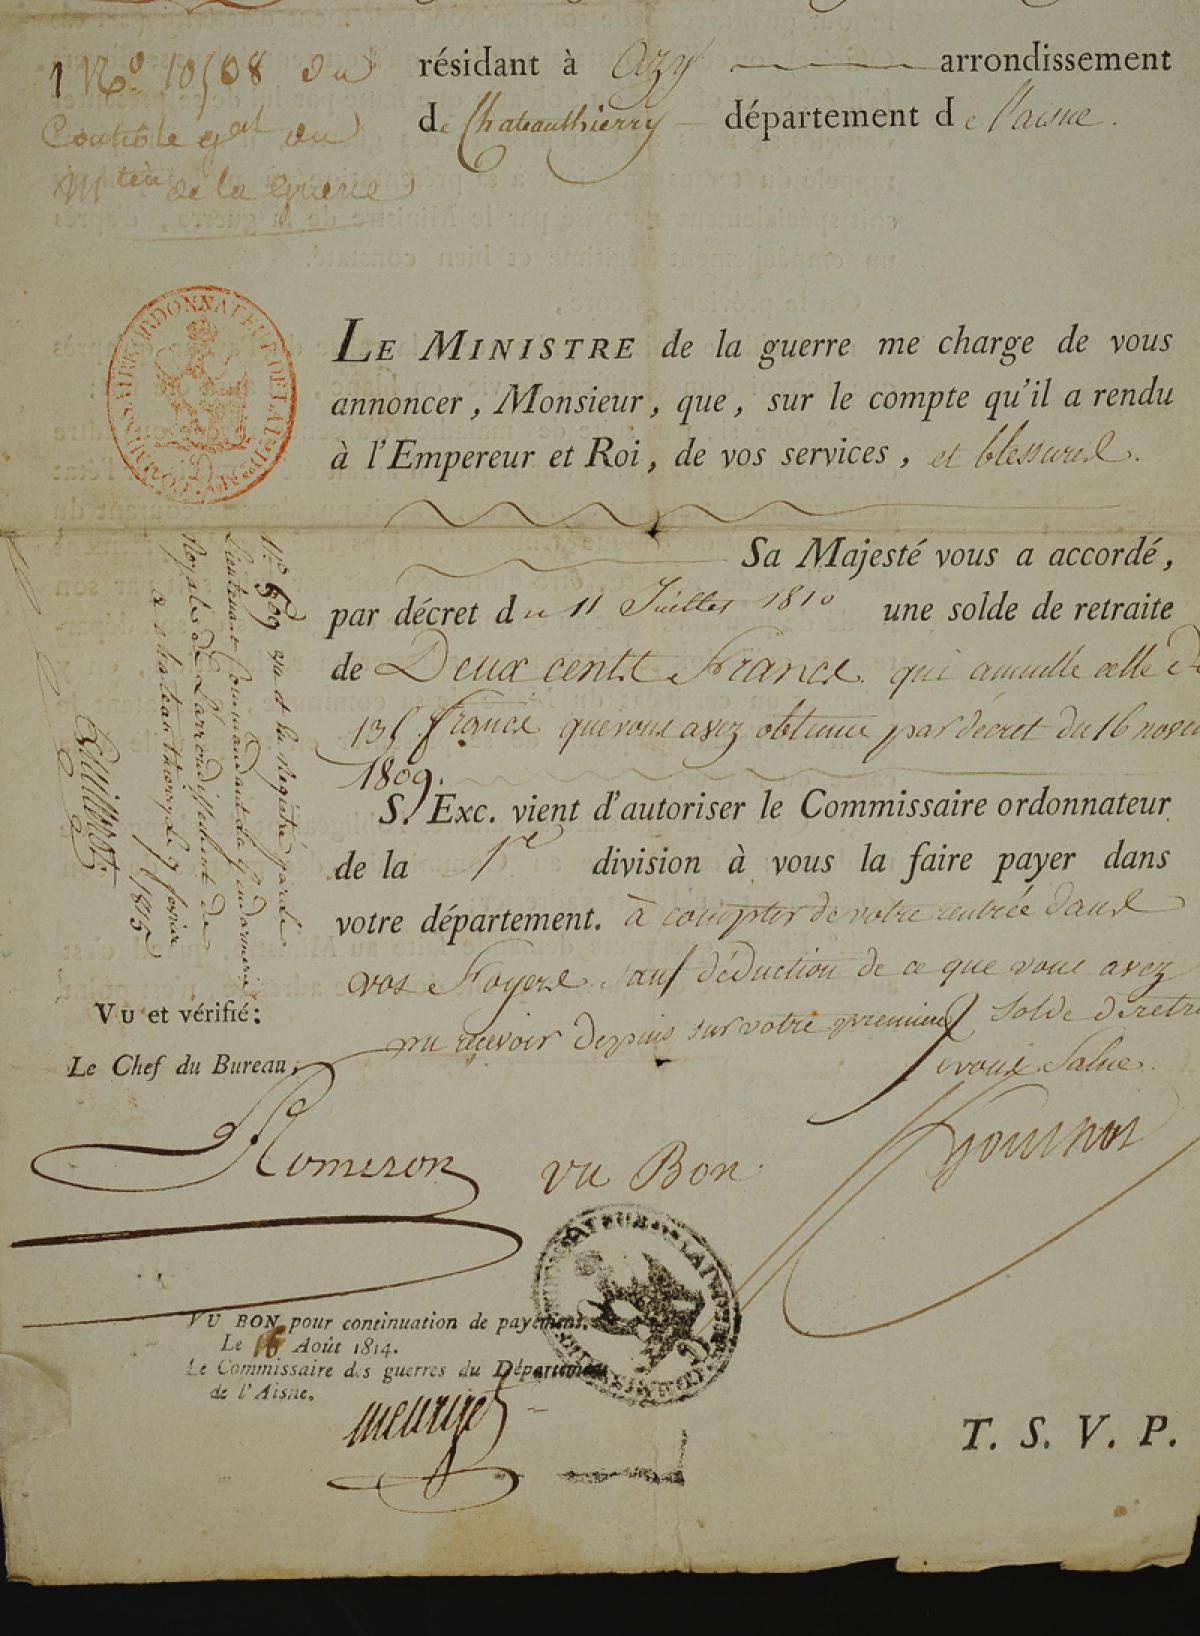 N.º 10508 du
Controle gal du
Mtère de la guerre
résidant à Azy arrondissement
de Chateauthierry département de l'aisne.
LE MINISTRE de la guerre me charge de vous
annoncer, Monsieur, que, sur le compte qu'il a rendu
à l'Empereur et Roi, de vos services, et blessures.
Sa Majesté vous a accordé,
par décret du 11 Juillet 1810 une solde de retraite
de Deux cents Francs. qui annulle celle de
135 francs que vous avez obtenue par décret du 16 novem
1809.
S. Exc. vient d'autoriser le Commissaire ordonnateur
de la 1re division à vous la faire payer dans
votre département. à compter de votre rentrée dans
vos Foyers. sauf déduction de ce que vous avez
pu recevoir depuis sur votre premiere solde de retr
je vous Salue.
N.º 509 vu et enregistré par le
Lieutenant Commandant la Gendarmerie
Royale de L'arrondissement de
chateau thierry le 9 1815
VU et vérifié:
Le Chef du Bureau,
Romeron
Vu Bon
VU BON pour continuation de payement.
Le 16 Août 1814.
Le Commissaire des guerres du Département
de l'Aisne.
T. S. V. P.